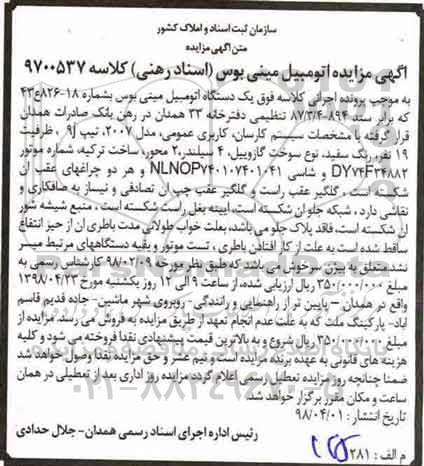 سازمان ثبت اسناد و املاک کشور
متن آگهی مزایده
آگهی مزایده اتومبیل مینی بوس (اسناد رهنی) کلاسه ۹۷۰۰۵۳۷
به موجب پرونده اجرائی کلاسه فوق یک دستگاه اتومبیل مینی بوس بشماره ۱۸-۸۲۶ع۴۳
که برابر سند ۸۹۴-۸۷/۳/۴ تنظیمی دفترخانه ۳۳ همدان در رهن بانک صادرات همدان
قرار گرفته با مشخصات سیستم کارسان، کاربری عمومی، مدل ۲۰۰۷، تیپ J۹ ، ظرفیت
۱۹ نفر، رنگ سفید، نوع سوخت گازوییل، ۴ سیلندر، ۲ محور، ساخت ترکیه، شماره موتور
DY۷۴F۲۴۸۸۲ و شاسی NLNOP۷۴۰۱۰۷۴۰۱۰۴۱ و هر دو چراغهای عقب آن
شکسته است ، گلگیر عقب راست و گلگیر عقب چپ آن تصادفی و نیاز به صافکاری و
نقاشی دارد ، شبکه جلو آن شکسته است، آیینه بغل راست شکسته است ، منبع شیشه شور
آن شکسته است، فاقد پلاک جلو می باشد، بعلت خواب طولانی مدت باطری آن از حیز انتفاع
ساقط شده است به علت از کار افتادن باطری ، تست موتور و بقیه دستگاههای مرتبط میسر
نشد، متعلق به بیژن سرخوش می باشد که طبق نظر مورخه ۹۸/۰۲/۰۹ کارشناس رسمی به
مبلغ ۳۵۰/۰۰۰/۰۰۰ ریال ارزیابی شده، از ساعت ۹ الی ۱۲ روز یکشنبه مورخ ۱۳۹۸/۰۴/۲۳
واقع در همدان – پایین تر از راهنمایی و رانندگی- روبروی شهر ماشین- جاده قدیم قاسم
آباد- پارکینگ ملت که به علت عدم انجام تعهد از طریق مزایده به فروش می رسد. مزایده از
مبلغ ۳۵۰/۰۰۰/۰۰۰ ریال شروع و به بالاترین قیمت پیشنهادی نقدا فروخته می شود و کلیه
هزینه های قانونی به عهده برنده مزایده است و نیم عشر و حق مزایده نقدا وصول خواهد شد
ضمنا چنانچه روز مزایده تعطیل رسمی اعلام گردد مزایده روز اداری بعد از تعطیلی در همان
ساعت و مکان مقرر برگزار خواهد شد.
تاریخ انتشار : ۹۸/۰۴/۰۱
رئیس اداره اجرای اسناد رسمی همدان- جلال حدادی
م الف : ۲۸۱